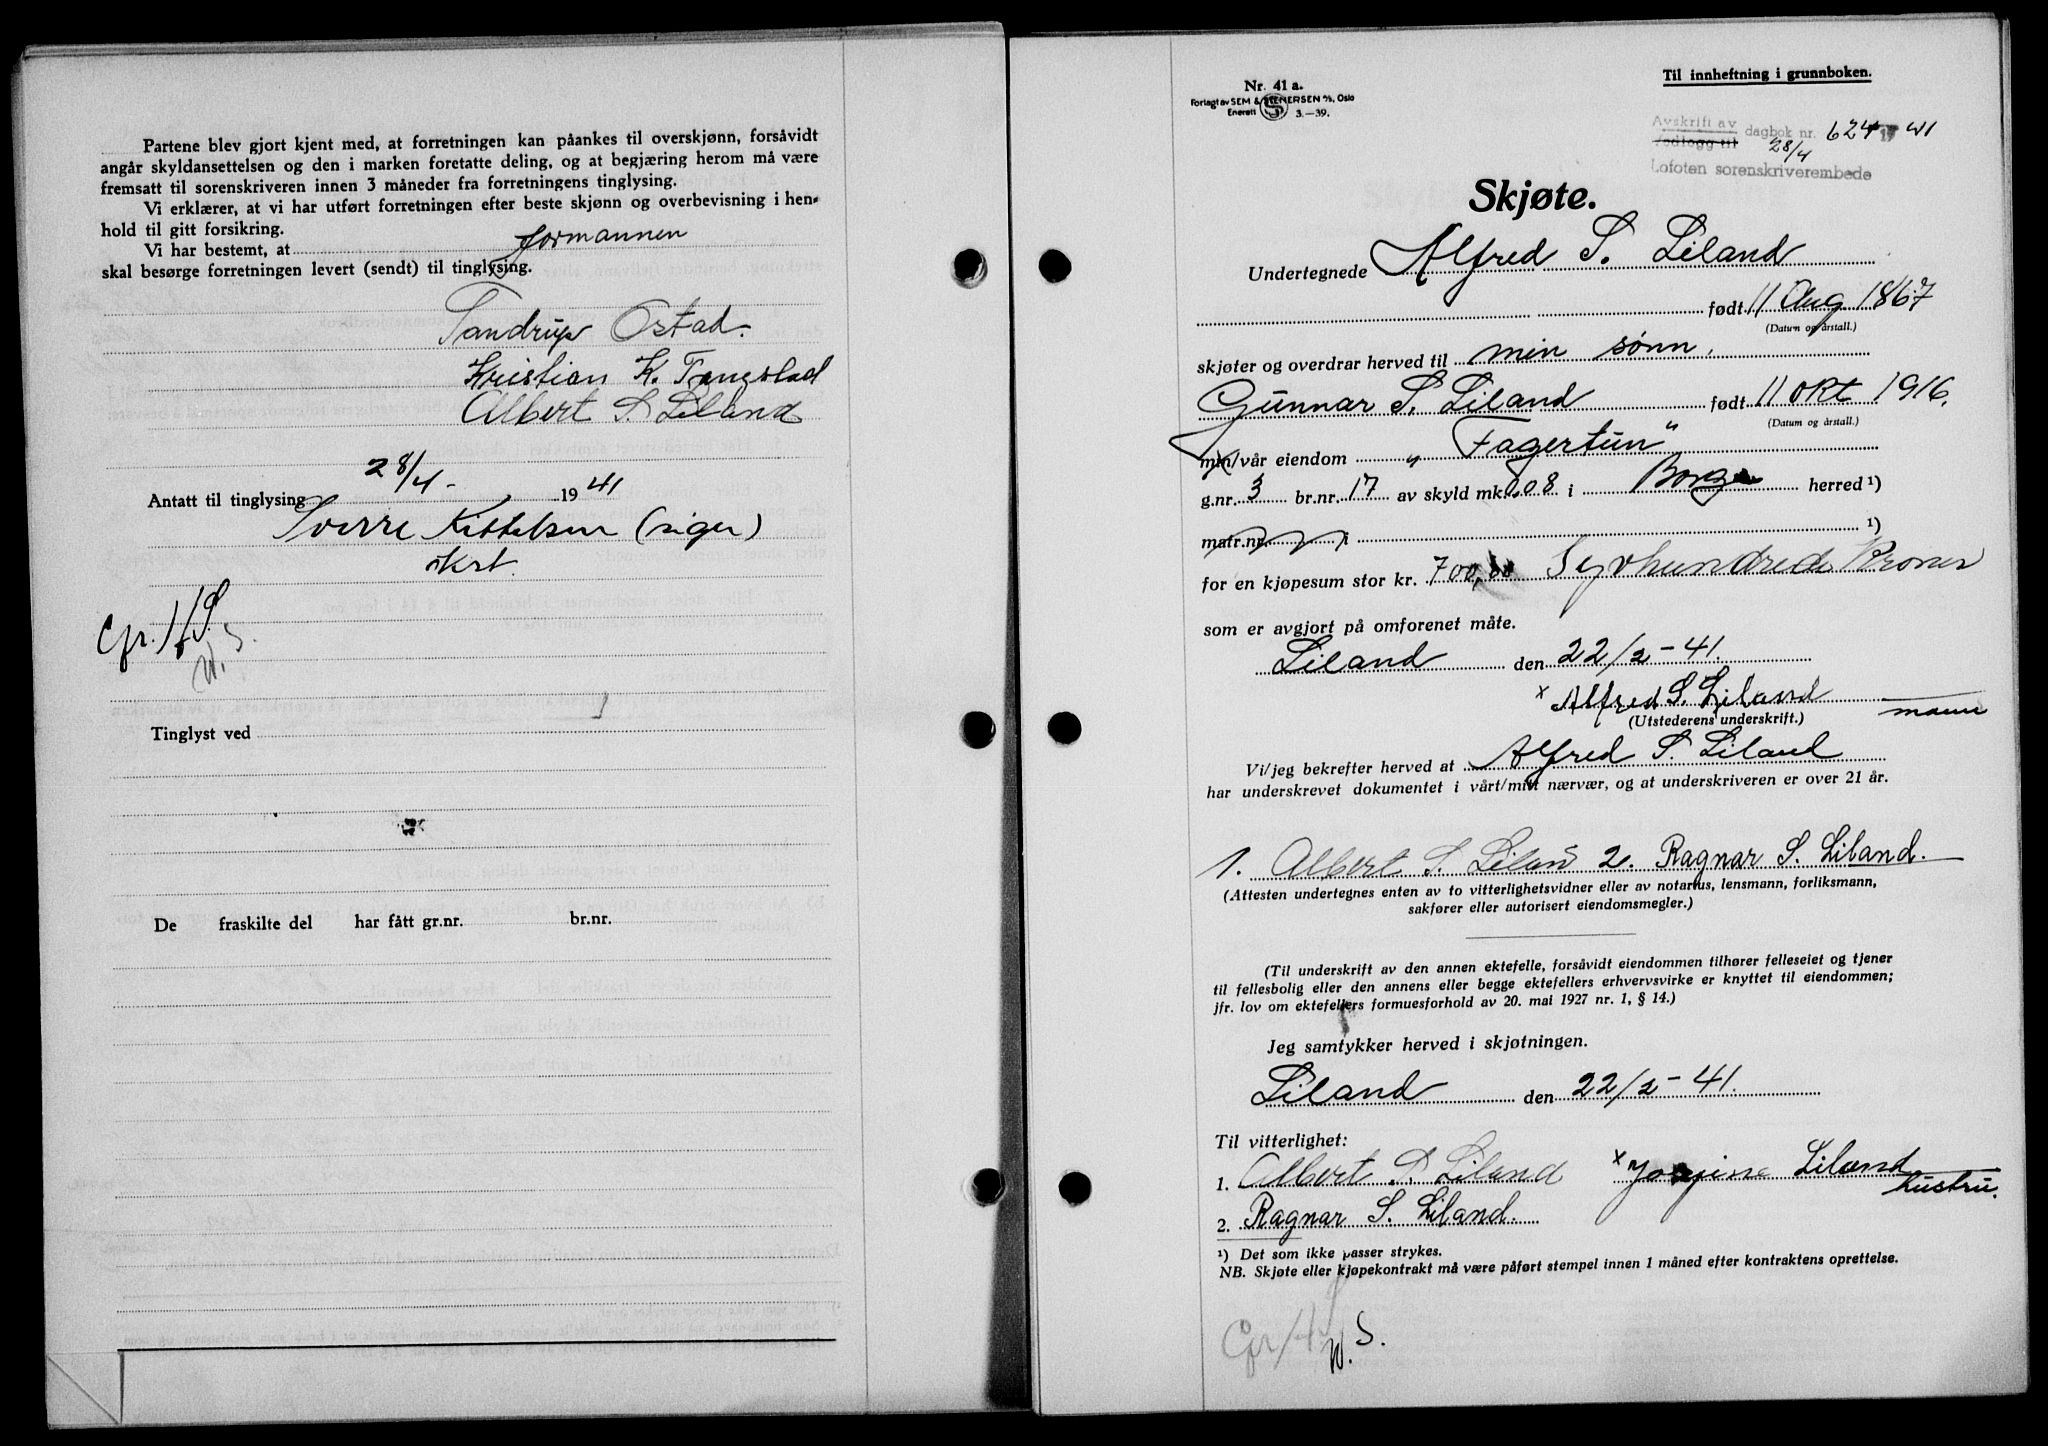 Partene blev gjort kjent med, at forretningen kan påankes til overskjønn, forsåvidt
angår skyldansettelsen og den i marken foretatte deling, og at begjæring herom må være
fremsatt til sorenskriveren innen 3 måneder fra forretningens tinglysing.
Vi erklærer, at vi har utført forretningen efter beste skjønn og overbevisning i hen-
hold til gitt forsikring.
Vi har bestemt, at formannen
skal besørge forretningen levert (sendt) til tinglysing.
Tandrup Ostad.
Kristian K. Tangstad
Albert S. Liland
Antatt til tinglysing 28/4 - 1941
Sverre Kittelsen (sign)
Cfr.
W. S.
Tinglyst ved
De fraskilte del har fått gr.nr. br.nr.
Til innheftning i grunnboken.
Nr. 41 a.
Forlagt av SEM & STENERSEN A/S, Oslo
Enerett S 3.—39.
Avskrift av
Vedlegg til dagbok nr. 624 19 41
28/4
Lofoten sorenskriverembede
Skjøte.
Undertegnede Alfred S. Liland
født 11 Aug 1867
(Datum og årstall.)
skjøter og overdrar herved til min sønn,
Gunnar S. Liland født 11 okt 1916.
(Datum og årstall.)
min/vår eiendom „ Fagertun"
g.nr. 3 br.nr. 17 av skyld mk. 0.08 i Borge herred ¹)
matr.nr. i ¹)
for en kjøpesum stor kr. 700,00 Syvhundrede Kroner
som er avgjort på omforenet måte.
Liland den 22/2 - 41.
x Alfred S. Liland
(Utstederens underskrift.) mann
Vi/jeg bekrefter herved at Alfred S. Liland
har underskrevet dokumentet i vårt/mitt nærvær, og at underskriveren er over 21 år.
1. Albert S. Liland 2. Ragnar S. Liland.
(Attesten undertegnes enten av to vitterlighetsvidner eller av notarius, lensmann, forliksmann,
sakfører eller autorisert eiendomsmegler.)
(Til underskrift av den annen ektefelle, forsåvidt eiendommen tilhører felleseiet og tjener
til fellesbolig eller den annens eller begge ektefellers erhvervsvirke er knyttet til eiendommen;
jfr. lov om ektefellers formuesforhold av 20. mai 1927 nr. 1, § 14.)
Jeg samtykker herved i skjøtningen.
Liland den 22/2 - 41.
Til vitterlighet:
1. Albert S. Liland x Liland
hustru.
2. Ragnar S. Liland.
¹) Det som ikke passer strykes.
NB. Skjøte eller kjøpekontrakt må være påført stempel innen 1 måned efter kontraktens oprettelse.
Cfr
W. S.